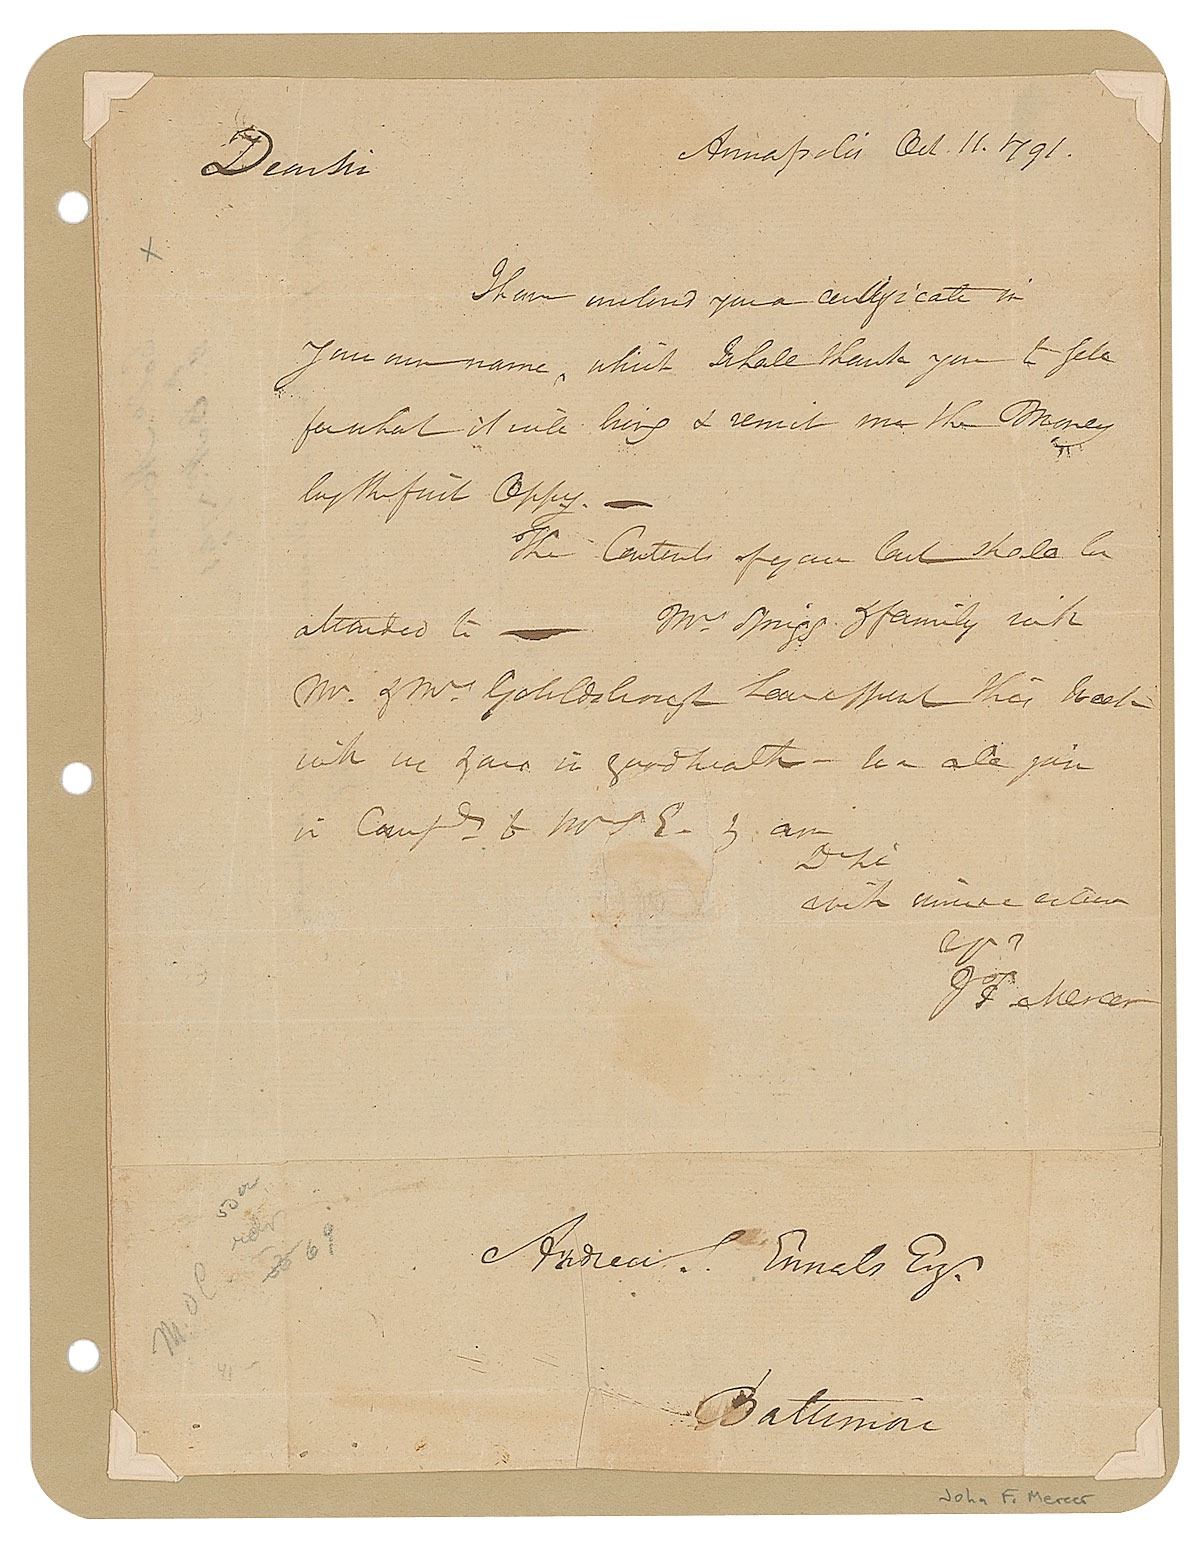 Annapolis Oct. 11. 1791.
Dear Sir
I have inclosed you a certificate in
your own name, which I shall thank you to sell
for what it will bring & remit me the Money
by the first Oppy. —
The Contents of your last shall be
attended to — Mrs Sprigg & family with
Mr. & Mrs Gouldsborough have spent this Week
with us & are in good health — we all join
in Compts to Mrs E. & I am
Dr Sir
with sincere esteem
Jon F. Mercer
Andrew S. Ennals Esq.
Baltimore
x
69
M.O.C
John F. Mercer